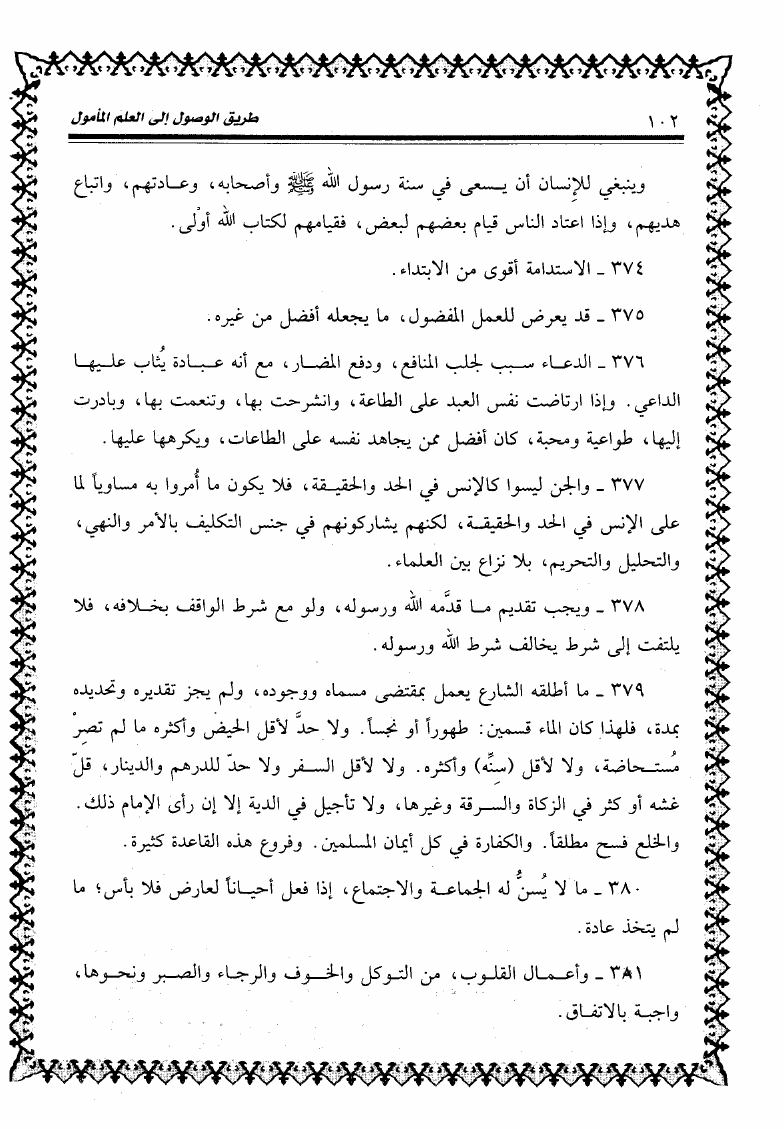 ١٠٢
طريق الوصول إلى العلم المأمول
وينبغي للإنسان أن يسعى في سنة رسول الله ﷺ وأصحابه، وعادتهم، واتباع
هديهم، وإذا اعتاد الناس قيام بعضهم لبعض، فقيامهم لكتاب الله أوْلى.
٣٧٤ - الاستدامة أقوى من الابتداء.
٣٧٥ - قد يعرض للعمل المفضول، ما يجعله أفضل من غيره.
٣٧٦ - الدعاء سبب لجلب المنافع، ودفع المضار، مع أنه عبادة يُثاب عليها
الداعي. وإذا ارتاضت نفس العبد على الطاعة، وانشرحت بها، وتنعمت بها، وبادرت
إليها، طواعية ومحبة، كان أفضل ممن يجاهد نفسه على الطاعات، ويكرهها عليها.
٣٧٧ - والجن ليسوا كالإنس في الحد والحقيقة، فلا يكون ما أُمروا به مساوياً لما
على الإنس في الحد والحقيقة، لكنهم يشاركونهم في جنس التكليف بالأمر والنهي،
والتحليل والتحريم، بلا نزاع بين العلماء.
٣٧٨ - ويجب تقديم ما قدَّمه الله ورسوله، ولو مع شرط الواقف بخلافه، فلا
يلتفت إلى شرط يخالف شرط الله ورسوله.
٣٧٩ - ما أطلقه الشارع يعمل بمقتضى مسماه ووجوده، ولم يجز تقديره وتحديده
بمدة، فلهذا كان الماء قسمين: طهوراً أو نجساً. ولا حدَّ لأقل الحيض وأكثره ما لم تصِرْ
مُستحاضة، ولا لأقل (سنِّه) وأكثره. ولا لأقل السفر ولا حدّ للدرهم والدينار، قلّ
غشه أو كثر في الزكاة والسرقة وغيرها، ولا تأجيل في الدية إلا إن رأى الإمام ذلك.
والخلع فسخ مطلقاً. والكفارة في كل أيمان المسلمين. وفروع هذه القاعدة كثيرة.
٣٨٠ - ما لا يُسنُّ له الجماعة والاجتماع، إذا فعل أحياناً لعارض فلا بأس؛ ما
لم يتخذ عادة.
٣٨١ - وأعمال القلوب، من التوكل والخوف والرجاء والصبر ونحوها،
واجبة بالاتفاق.